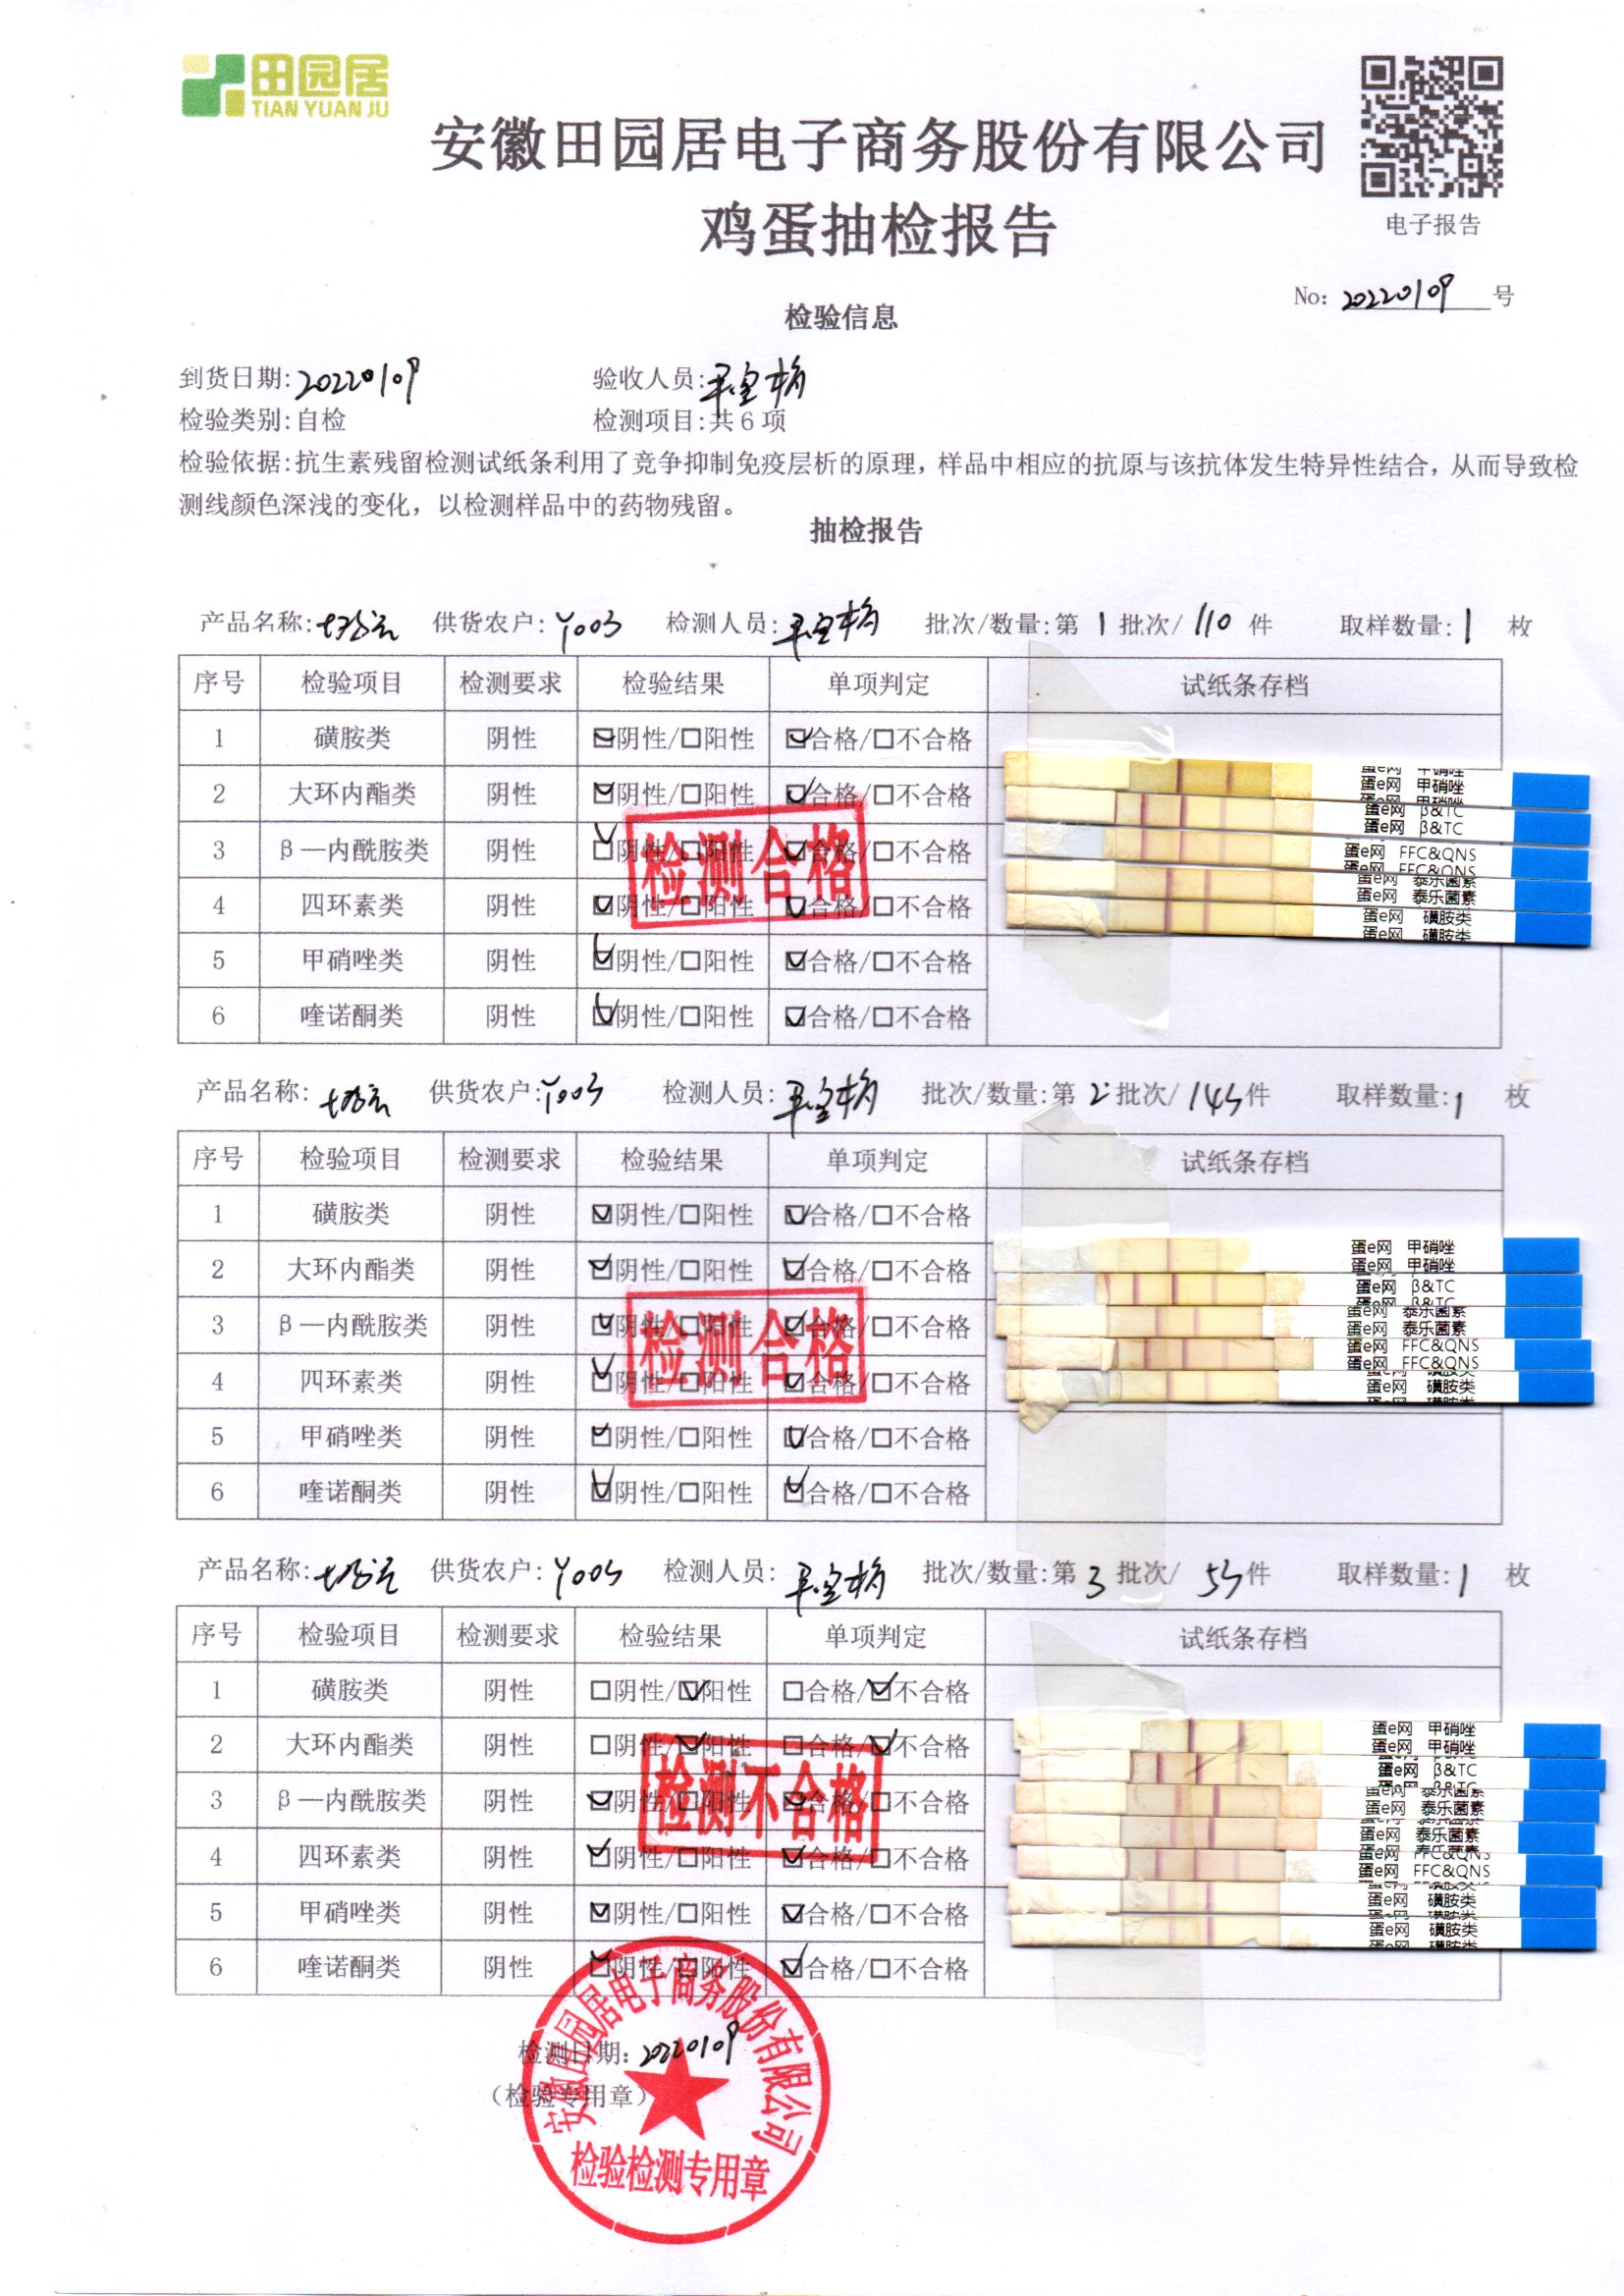 田园居
TIAN YUAN JU
安徽田园居电子商务股份有限公司
鸡蛋抽检报告
电子报告
No: 20220109 号
检验信息
到货日期:20220109 验收人员:
检验类别:自检 检测项目:共6项
检验依据:抗生素残留检测试纸条利用了竞争抑制免疫层析的原理,样品中相应的抗原与该抗体发生特异性结合,从而导致检
测线颜色深浅的变化,以检测样品中的药物残留。
抽检报告
产品名称: 供货农户:Y003 检测人员: 批次/数量:第1批次/110件 取样数量:1枚
序号 检验项目 检测要求 检验结果 单项判定 试纸条存档
1 磺胺类 阴性 ☑阴性/□阳性 ☑合格/□不合格
2 大环内酯类 阴性 ☑阴性/□阳性 ☑合格/□不合格
3 β—内酰胺类 阴性 ☑阴性/□阳性 ☑合格/□不合格
4 四环素类 阴性 ☑阴性/□阳性 ☑合格/□不合格
5 甲硝唑类 阴性 ☑阴性/□阳性 ☑合格/□不合格
6 喹诺酮类 阴性 ☑阴性/□阳性 ☑合格/□不合格
检测合格
蛋e网 甲硝唑
蛋e网 甲硝唑
蛋e网 甲硝唑
蛋e网 β&TC
蛋e网 β&TC
蛋e网 FFC&QNS
蛋e网 FFC&QNS
蛋e网 泰乐菌素
蛋e网 泰乐菌素
蛋e网 磺胺类
蛋e网 磺胺类
产品名称: 供货农户:Y003 检测人员: 批次/数量:第2批次/145件 取样数量:1枚
序号 检验项目 检测要求 检验结果 单项判定 试纸条存档
1 磺胺类 阴性 ☑阴性/□阳性 ☑合格/□不合格
2 大环内酯类 阴性 ☑阴性/□阳性 ☑合格/□不合格
3 β—内酰胺类 阴性 ☑阴性/□阳性 ☑合格/□不合格
4 四环素类 阴性 ☑阴性/□阳性 ☑合格/□不合格
5 甲硝唑类 阴性 ☑阴性/□阳性 ☑合格/□不合格
6 喹诺酮类 阴性 ☑阴性/□阳性 ☑合格/□不合格
检测合格
蛋e网 甲硝唑
蛋e网 甲硝唑
蛋e网 β&TC
蛋e网 β&TC
蛋e网 泰乐菌素
蛋e网 泰乐菌素
蛋e网 FFC&QNS
蛋e网 FFC&QNS
蛋e网 磺胺类
蛋e网 磺胺类
蛋e网 磺胺类
产品名称: 供货农户:Y005 检测人员: 批次/数量:第3批次/55件 取样数量:1枚
序号 检验项目 检测要求 检验结果 单项判定 试纸条存档
1 磺胺类 阴性 □阴性/☑阳性 □合格/☑不合格
2 大环内酯类 阴性 □阴性/☑阳性 □合格/☑不合格
3 β—内酰胺类 阴性 ☑阴性/□阳性 ☑合格/□不合格
4 四环素类 阴性 ☑阴性/□阳性 ☑合格/□不合格
5 甲硝唑类 阴性 ☑阴性/□阳性 ☑合格/□不合格
6 喹诺酮类 阴性 ☑阴性/□阳性 ☑合格/□不合格
检测不合格
蛋e网 甲硝唑
蛋e网 甲硝唑
蛋e网 β&TC
蛋e网 β&TC
蛋e网 β&TC
蛋e网 泰乐菌素
蛋e网 泰乐菌素
蛋e网 泰乐菌素
蛋e网 泰乐菌素
蛋e网 FFC&QNS
蛋e网 FFC&QNS
蛋e网 磺胺类
蛋e网 磺胺类
蛋e网 磺胺类
蛋e网 磺胺类
检测日期: 20220109
(检验专用章)
安徽田园居电子商务股份有限公司
检验检测专用章